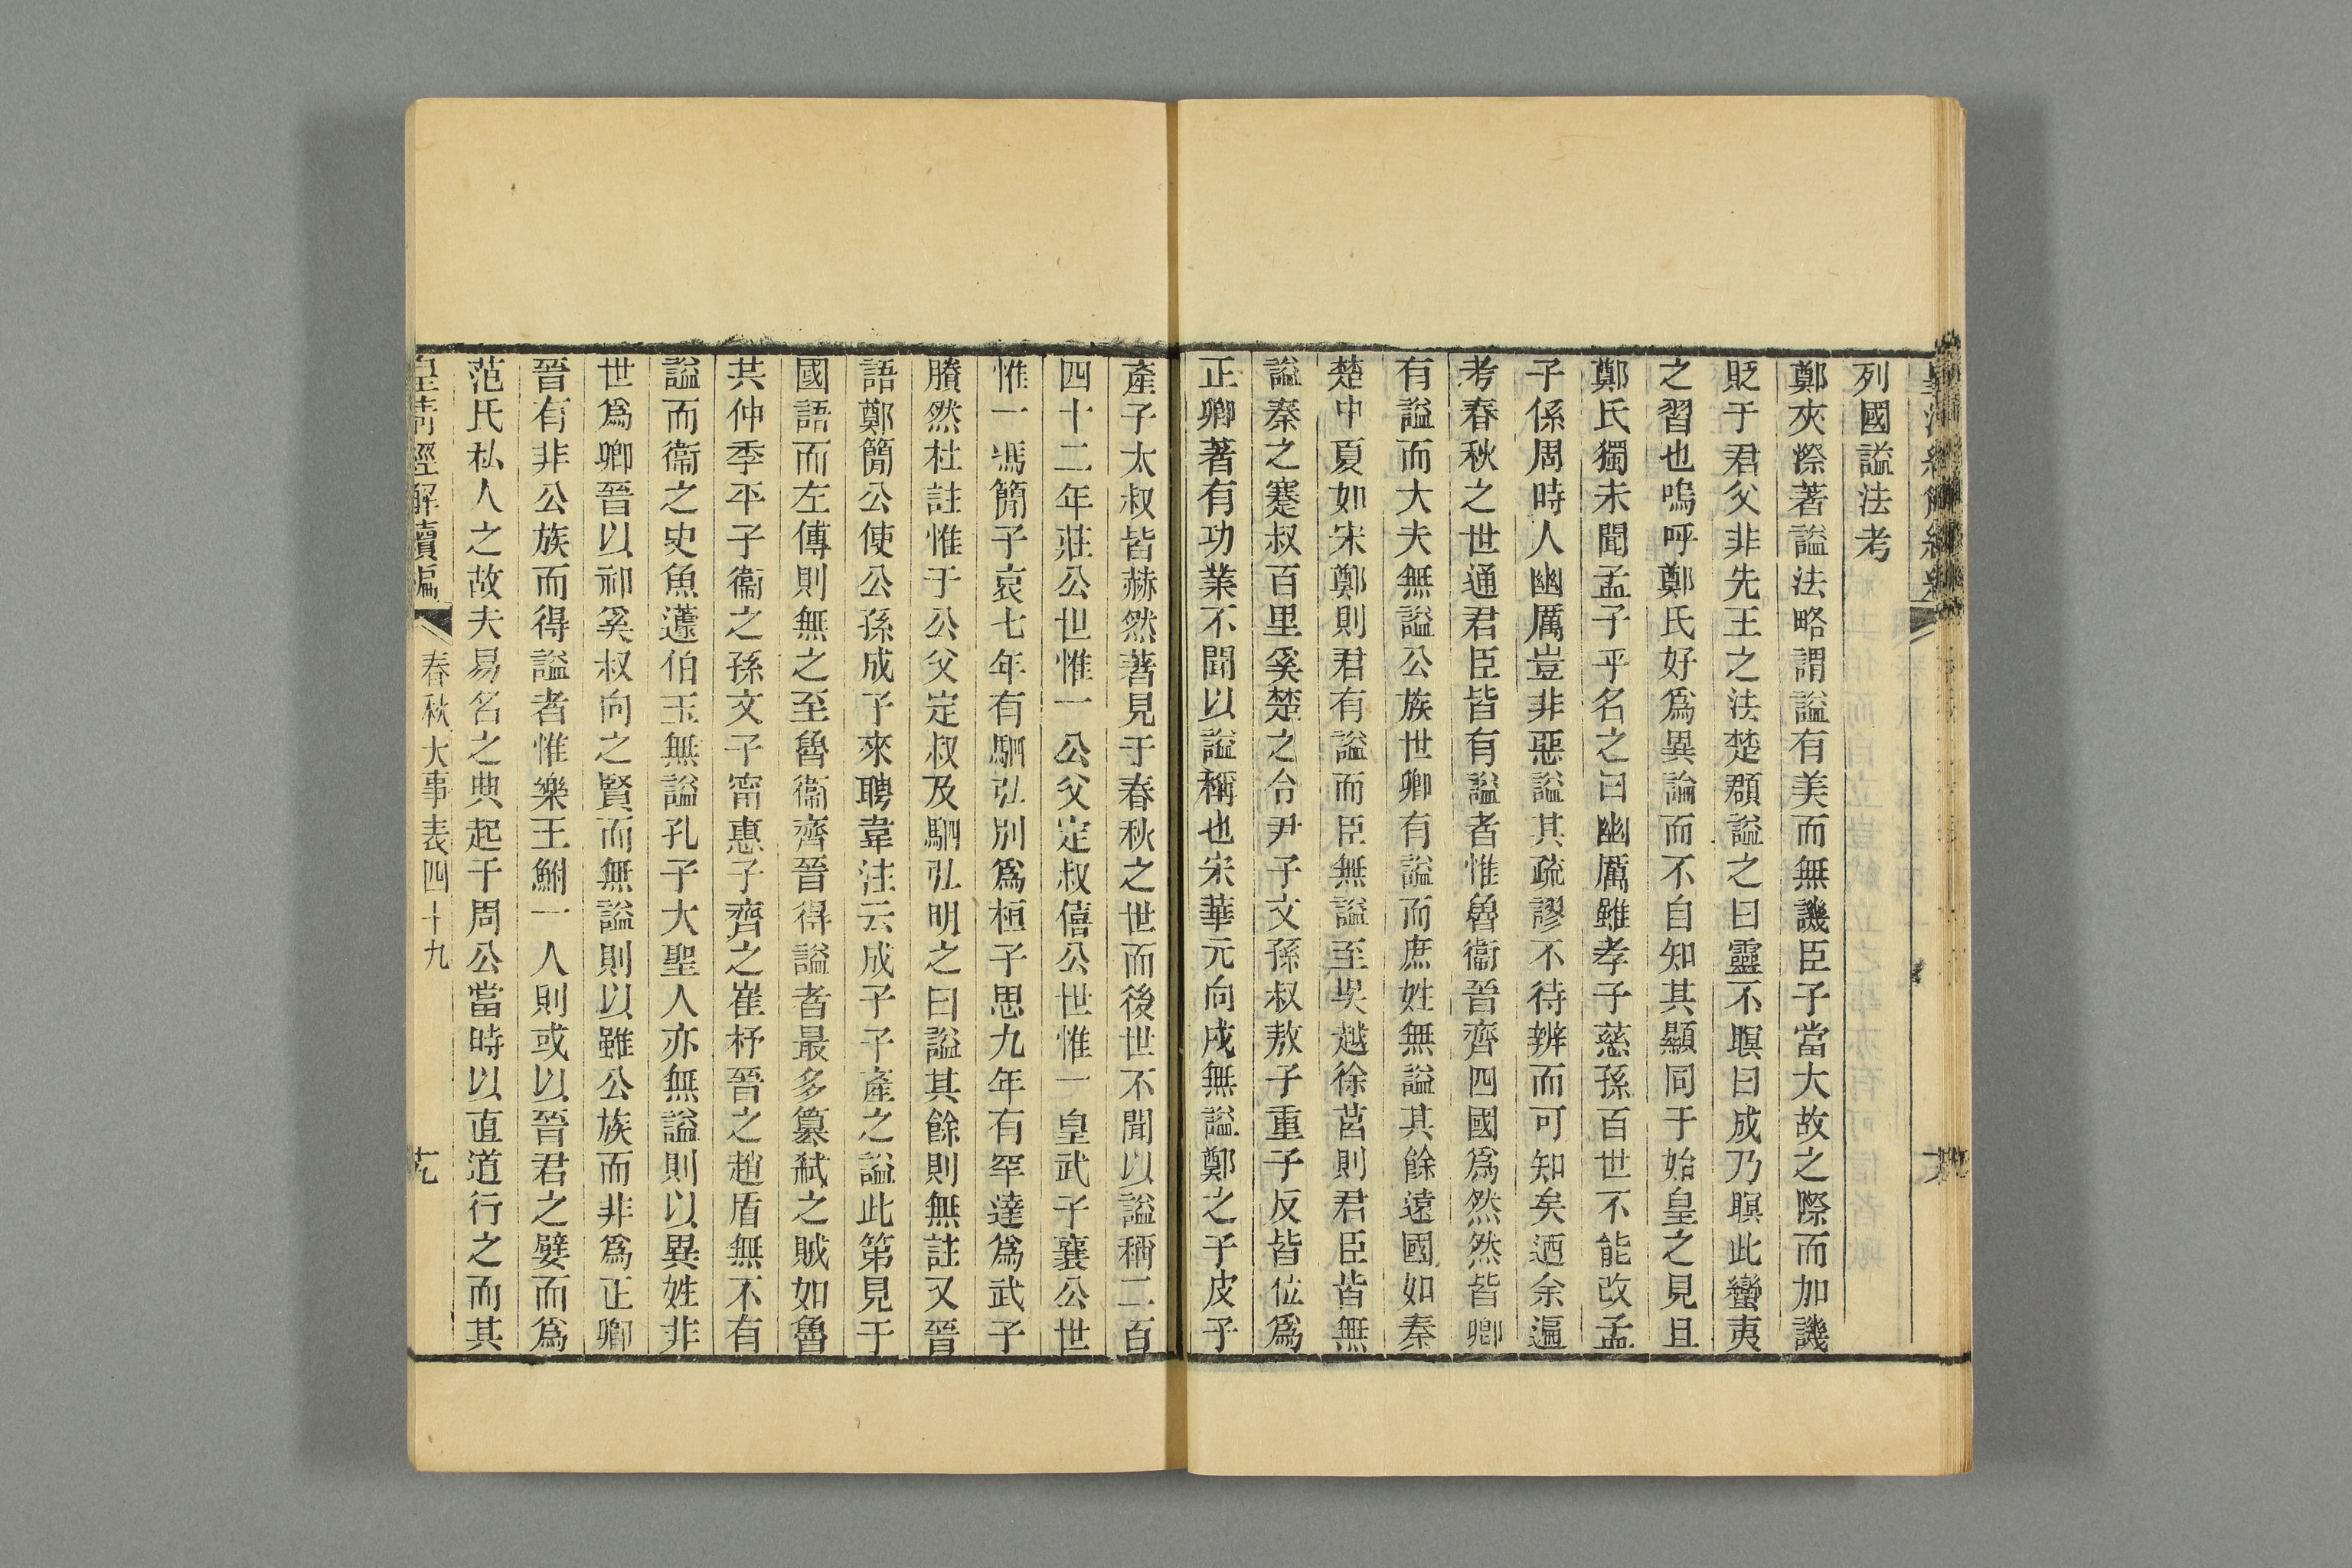 列國謚法考
鄭夾漈著謚法略謂謚有美而無譏臣子當大故之際而加譏
貶于君父非先王之法楚頵謚之曰靈不瞑曰成乃瞑此蠻夷
之習也嗚呼鄭氏好爲異論而不自知其顯同于始皇之見且
鄭氏獨未聞孟子乎名之曰幽厲雖孝子慈孫百世不能改孟
子係周時人幽厲豈非惡謚其疏謬不待辨而可知矣迺余遍
考春秋之世通君臣皆有謚者惟魯衞晉齊四國爲然然皆卿
有謚而大夫無謚公族世卿有謚而庶姓無謚其餘遠國如秦
楚中夏如宋鄭則君有謚而臣無謚至吳越徐莒則君臣皆無
謚秦之蹇叔百里奚楚之令尹子文孫叔敖子重子反皆位爲
正卿著有功業不聞以謚稱也宋華元向戌無謚鄭之子皮子
產子太叔皆赫然著見于春秋之世而後世不聞以謚稱二百
四十二年莊公世惟一公父定叔僖公世惟一皇武子襄公世
惟一馮簡子哀七年有駟弘別爲桓子思九年有罕達爲武子
賸然杜註惟于公父定叔及駟弘明之曰謚其餘則無註又晉
語鄭簡公使公孫成子來聘韋注云成子子產之謚此第見于
國語而左傳則無之至魯衞齊晉得謚者最多篡弒之賊如魯
共仲季平子衞之孫文子甯惠子齊之崔杼晉之趙盾無不有
謚而衞之史魚蘧伯玉無謚孔子大聖人亦無謚則以異姓非
世爲卿晉以祁奚叔向之賢而無謚則以雖公族而非爲正卿
晉有非公族而得謚者惟樂王鮒一人則或以晉君之嬖而爲
范氏私人之故夫易名之典起于周公當時以直道行之而其
皇清經解續編 春秋大事表四十九